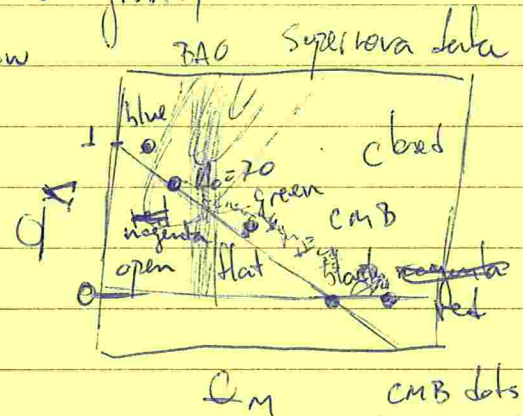 BAO Supernova data
blue
1
closed
H₀=70
green
magenta
CMB
open
flat
black
0
red
Ω_Λ
Ω_M
CMB dots